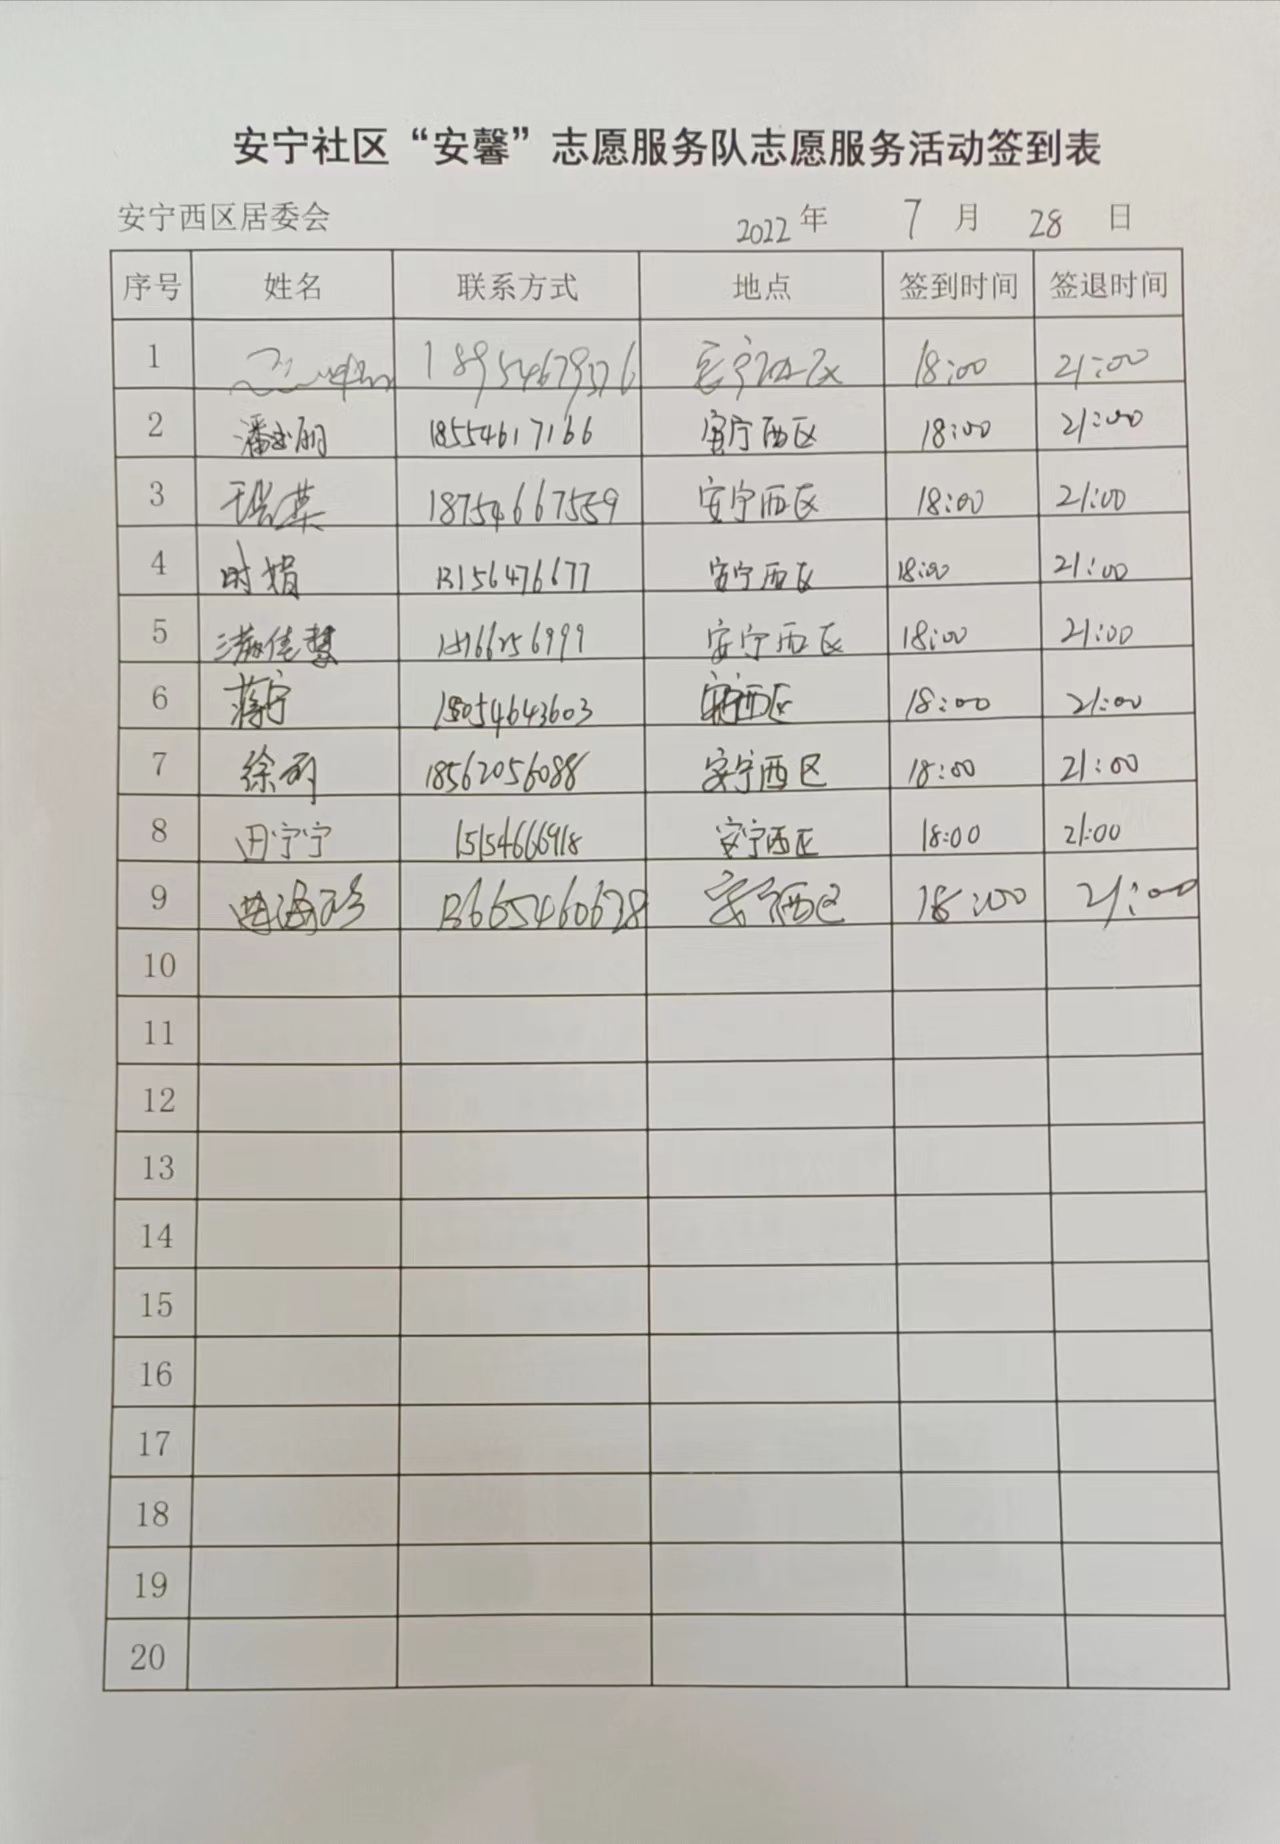 安宁社区“安馨”志愿服务队志愿服务活动签到表
安宁西区居委会 2022年 7月 28日
序号 姓名 联系方式 地点 签到时间 签退时间
1 18:00 21:00
2 18554617166 安宁西区 18:00 21:00
3 18754667559 安宁西区 18:00 21:00
4 时娟 13156476677 安宁西区 18:00 21:00
5 安宁西区 18:00 21:00
6 蒋宁 18054643603 安宁西区 18:00 21:00
7 徐丽 18562056088 安宁西区 18:00 21:00
8 田宁宁 15154666918 安宁西区 18:00 21:00
9 安宁西区 18:00 21:00
10
11
12
13
14
15
16
17
18
19
20